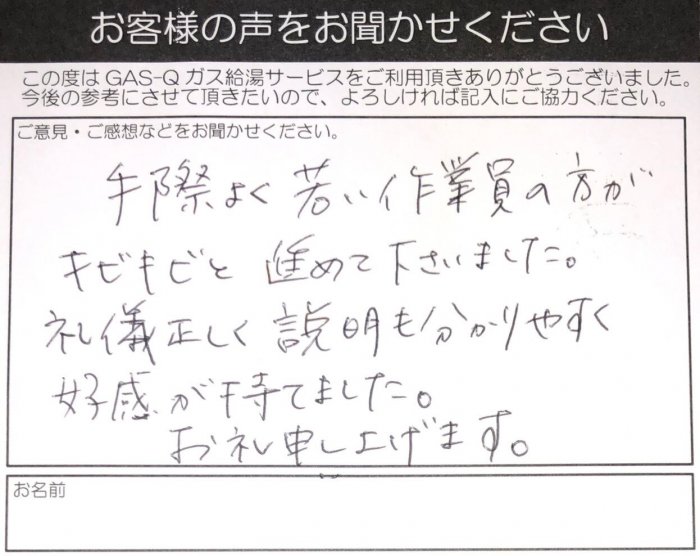 お客様の声をお聞かせください
この度は GAS-Q ガス給湯サービスをご利用頂きありがとうございました。
今後の参考にさせて頂きたいので、よろしければ記入にご協力ください。
ご意見・ご感想などをお聞かせください。
手際よく 若い作業員の方が
キビキビと 進めて下さいました。
礼儀正しく 説明も分かりやすく
好感が持てました。
お礼申し上げます。
お名前